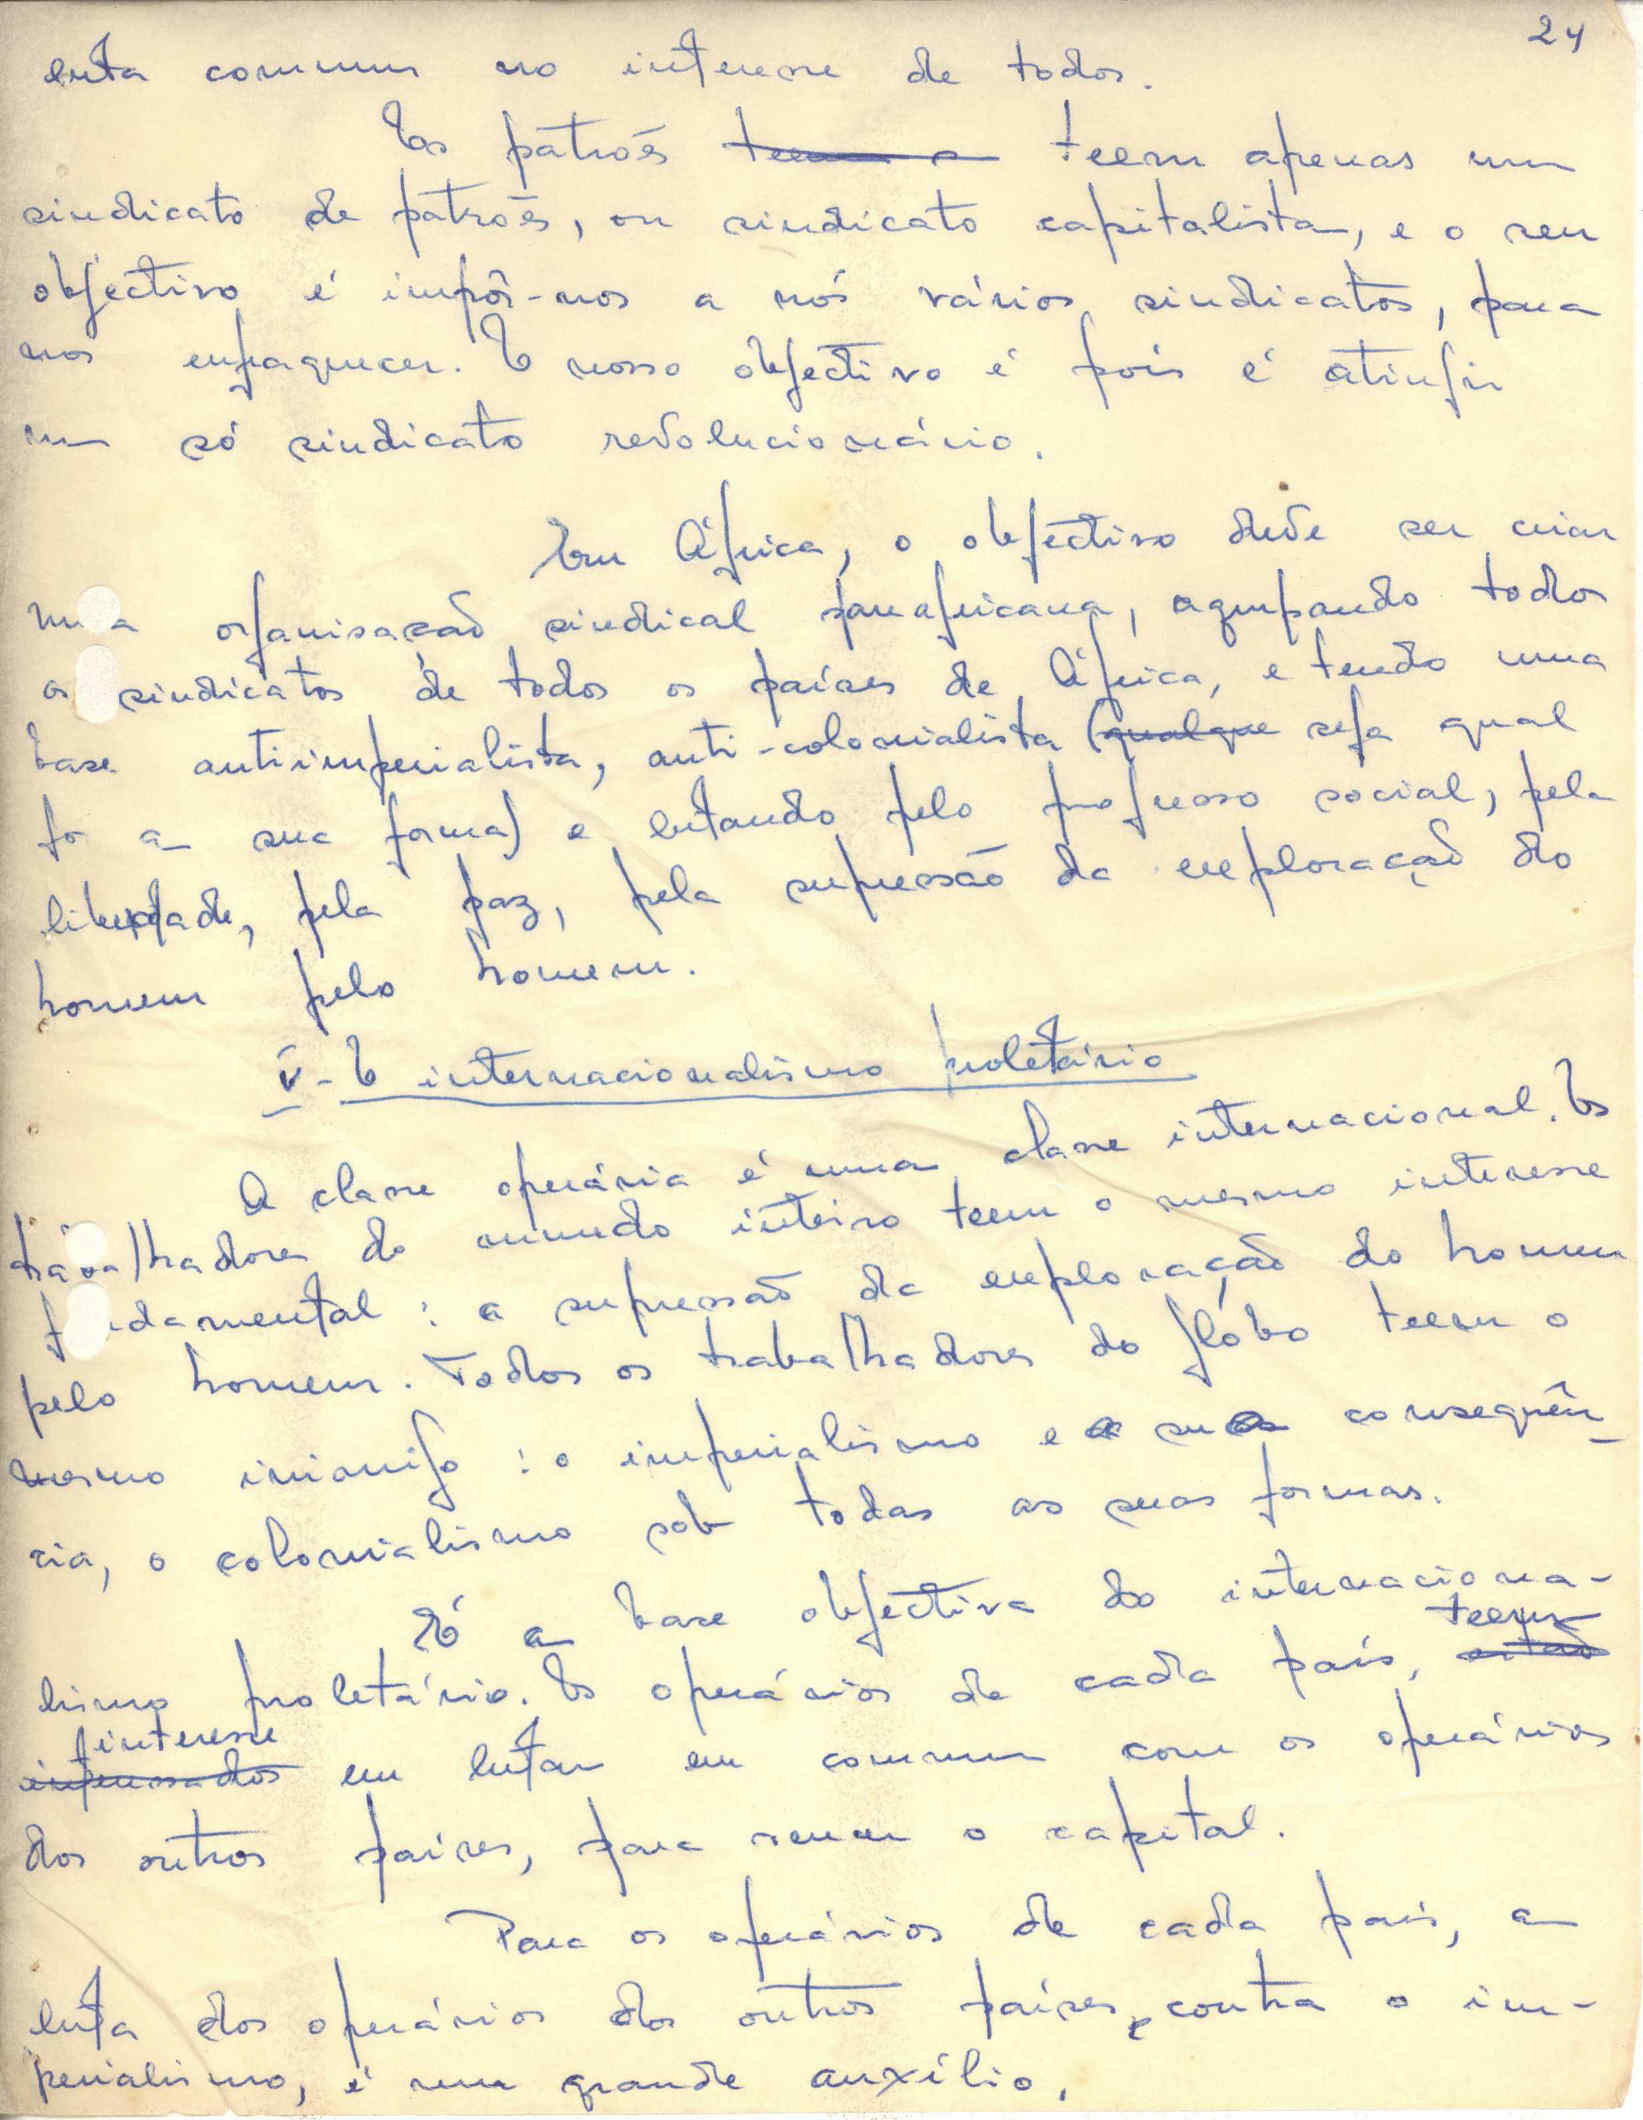 24
luta comum no interesse de todos.
Os patrões teem a teem apenas um
sindicato de patrões, ou sindicato capitalista, e o seu
objectivo é impôr-nos a nós vários sindicatos, para
nos enfraquecer. O nosso objectivo é pois é atingir
um só sindicato revolucionário.
Em África, o objectivo deve ser criar
uma organisação sindical panafricana, agrupando todos
os sindicatos de todos os países de África, e tendo uma
base antiimperialista, anti-colonialista (qualque seja qual
for a sua forma) e lutando pelo progresso social, pela
liberdade, pela paz, pela supressão da exploração do
homem pelo homem.
V - O internacionalismo proletário
A classe operária é uma classe internacional. Os
trabalhadores do mundo inteiro teem o mesmo interesse
fundamental : a supressão da exploração do homem
pelo homem. Todos os trabalhadores do glóbo teem o
mesmo inimigo : o imperialismo e a sua consequên-
cia, o colonialismo sob todas as suas formas.
É a base objectiva do internaciona-
teem
lismo proletário. Os operários de cada país, estão
interesse
interessados em lutar em comum com os operários
dos outros países, para vencer o capital.
Para os operários de cada país, a
luta dos operários dos outros países, contra o im-
perialismo, é um grande auxílio.